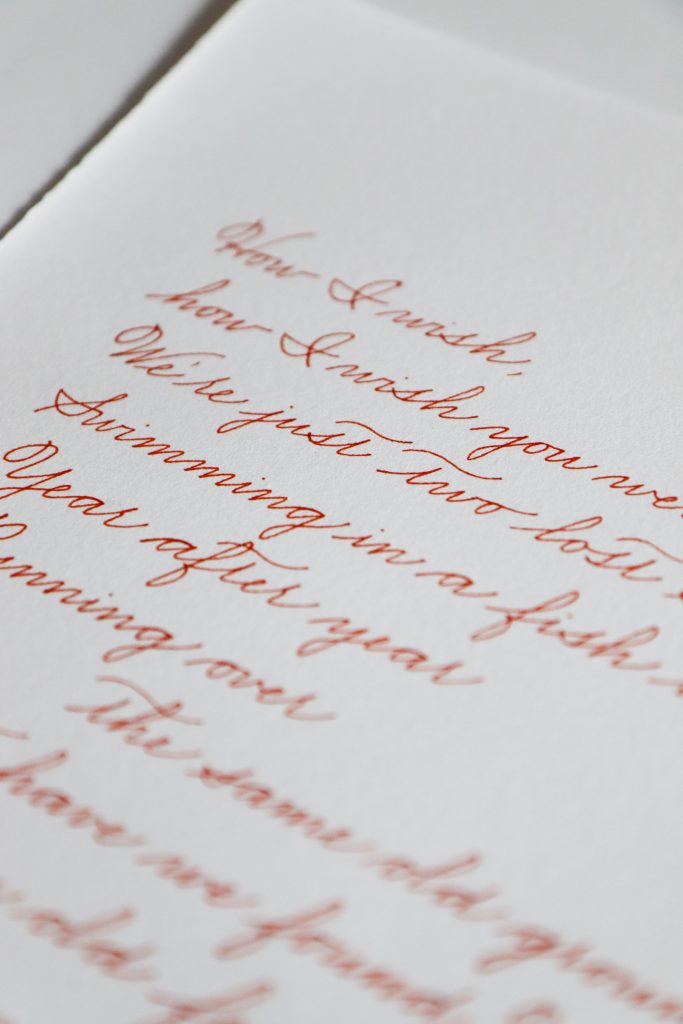 How I wish,
how I wish you we
We're just two lost
Swimming in a fish
Year after year
unning over
the same old groun
have we found
old